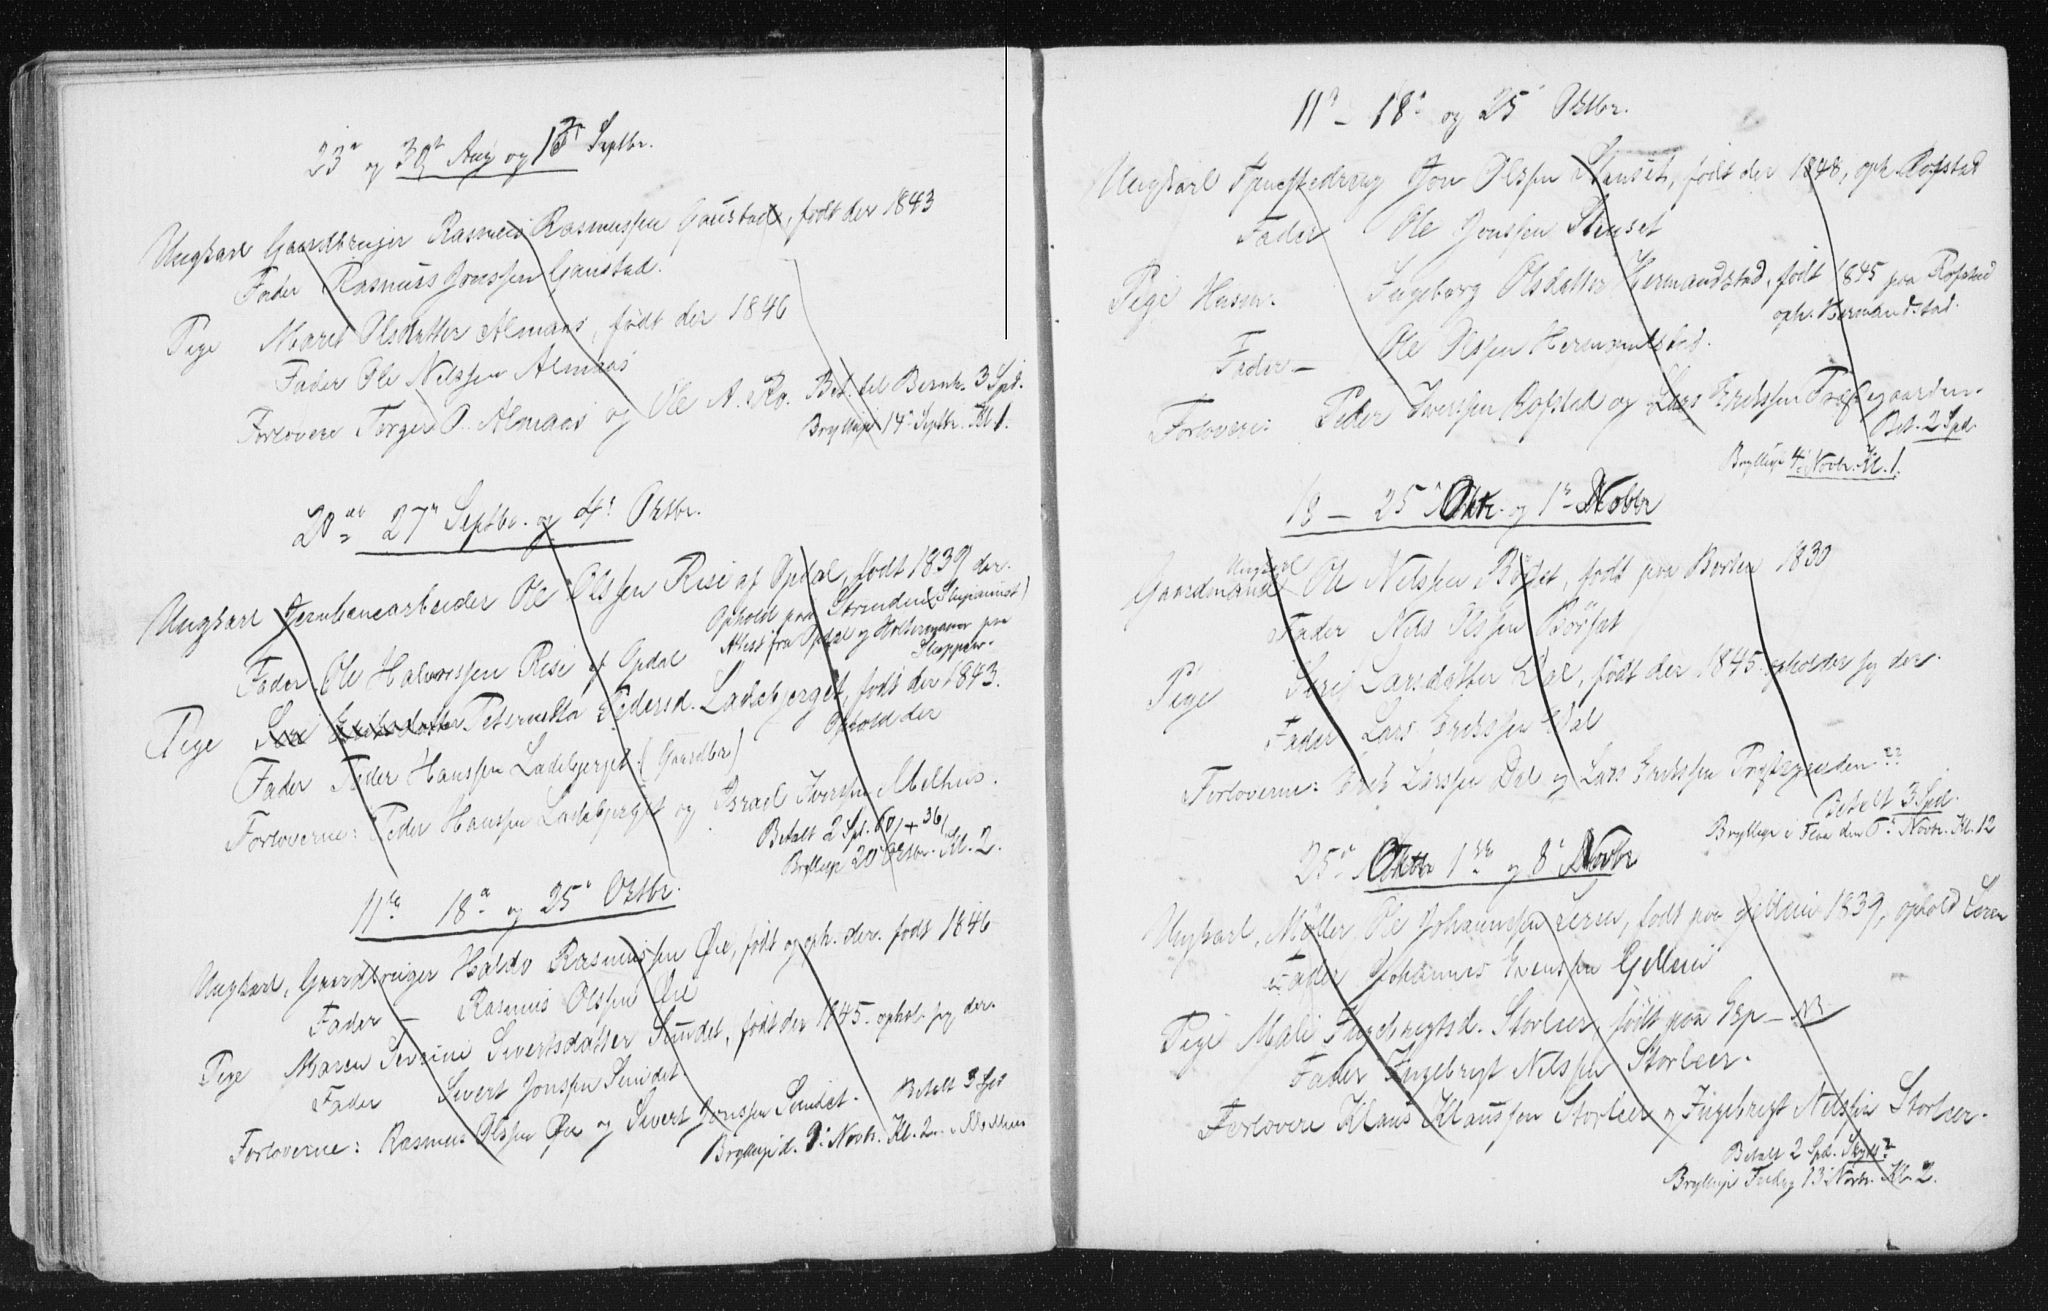 23' og 30te Aug og 13' Septbr.
Ungkarl Gaardbruger Rasmus Rasmussen Gaustad, født der 1843
Fader Rasmus Jonssen Gaustad.
Pige Maret Olsdatter Almaas, født der 1846
Fader Ole Nilssen Almaas
Forlovere Torger O. Almaas og Ole A. Ro. Bet. til Bernh. 3 Spd.
Bryllup 14' Septbr. Kl 1.
20de 27' Septbr. og 4' Oktbr.
Ungkarl Jernbanearbeider Ole Olssen Risi af Opdal, født 1839 der.
Ophold paa Strinden
Attest fra Opdal og
Fader Ole Halvorssen Risi af Opdal
Pige Peternetta Pedersd. Ladebjerget, født der 1843.
Ophold der
Fader Peder Hanssen Ladebjerget (Gaardbr)
Forloverne: Peder Hanssen Ladebjerget og Israel Iverssen Melhus.
Betalt 2 Spd. 60 + 36
Bryllup 20' Oktbr. Kl. 2.
11te 18' og 25' Oktbr.
Ungkarl, Gaardbruger Haldo Rasmussen Øie, født og oph. der. født 1846
Fader – Rasmus Olssen Øie
Pige Maren Sivertsdatter Sundet, født der 1845. ophol. sig der.
Fader Sivert Jonssen Sundet
Forloverne: Rasmus Olssen Øie og Sivert Jonssen Sundet. Betalt 3 Spd
Bryllup d. Novbr. Kl. 2.
11' – 18' og 25' Oktbr.
Ungkarl Jon Olssen Stenset, født der 1848, oph. Rofstad
Fader Ole Jonssen Stenset
Pige Husm. Ingeborg Olsdatter Hermandstad, født 1845 paa Rofstad
oph. Hermandstad.
Fader – Ole Olssen Hermandstad.
Forlovere: Peder Iverssen Rofstad og Lars Erikssen Præstegaarden.
Bet. 2 Spd.
Bryllup 4' Novbr. Kl. 1.
18 – 25' Oktr. og 1' Nobbr
Ungkarl
Gaardmand Ole Nilssen Børset, født paa Borten 1830
Fader Nils Olssen Børset
Pige Larsdatter Dal, født der 1845. opholder sig der.
Fader Lars Erikssen Dal
Forloverne: Erik Larssen Dal og Lars Erikssen
Betalt 3 Spd.
Bryllup i Flaa den 6' Novbr. Kl. 12
25' Oktbr 1ste og 8' Novbr
Ungkarl, Møller Ole Johannssen Leren, født paa 1839, ophold Leren
Fader Johannes Evenssen
Pige Mali Ingebrigtsd. Storleer, født paa Esp –
Fader Ingebrigt Nilssen Storleer.
Forlovere Klaus Klaussen Storleer og Ingebrigt Nilssen Storleer.
Betalt 2 Spd.
Bryllup Fredag 13' Novbr. Kl. 2.